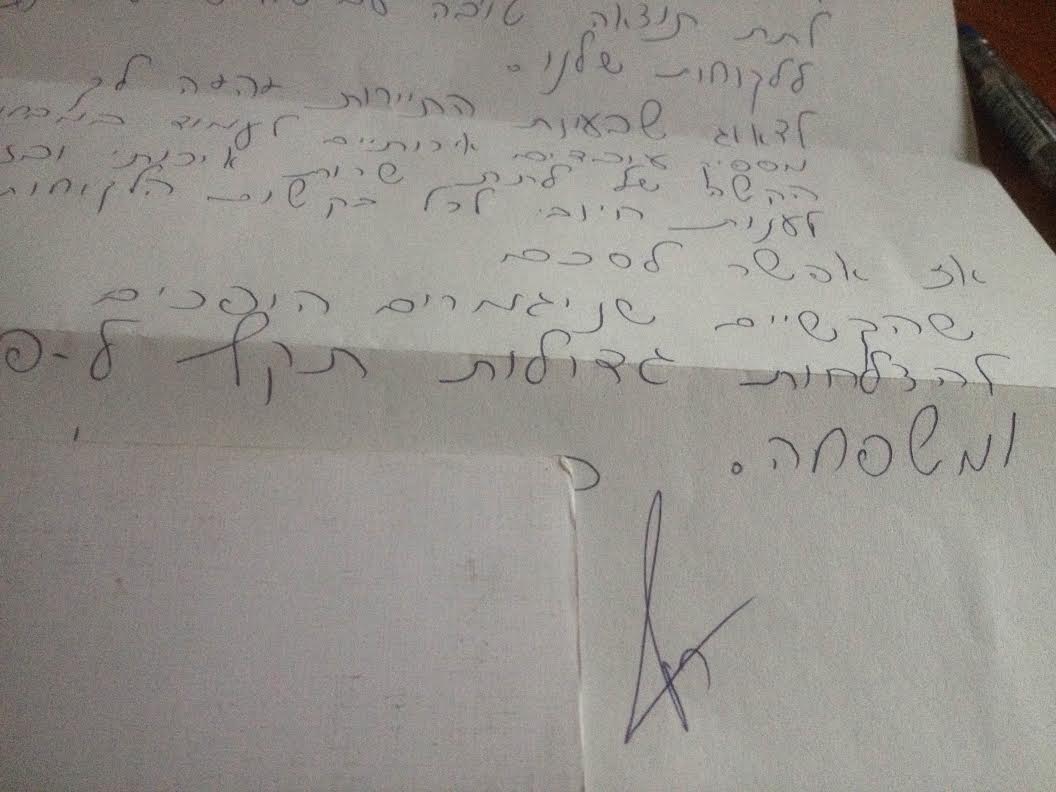 לתת תוצאה טובה
ללקוחות שלנו.
לדאוג שבעונת התיירות יהיה לך
מספיק עובדים איכותיים לעמוד
הקשל של לתת שרות איכותי
לענות חיובי לכל בקשות הלקוחות
אז אפשר לסכם
שהקשיים שניגמרים היפכים
להצלחות גדולות תקף ל-פ
ומשפחה.